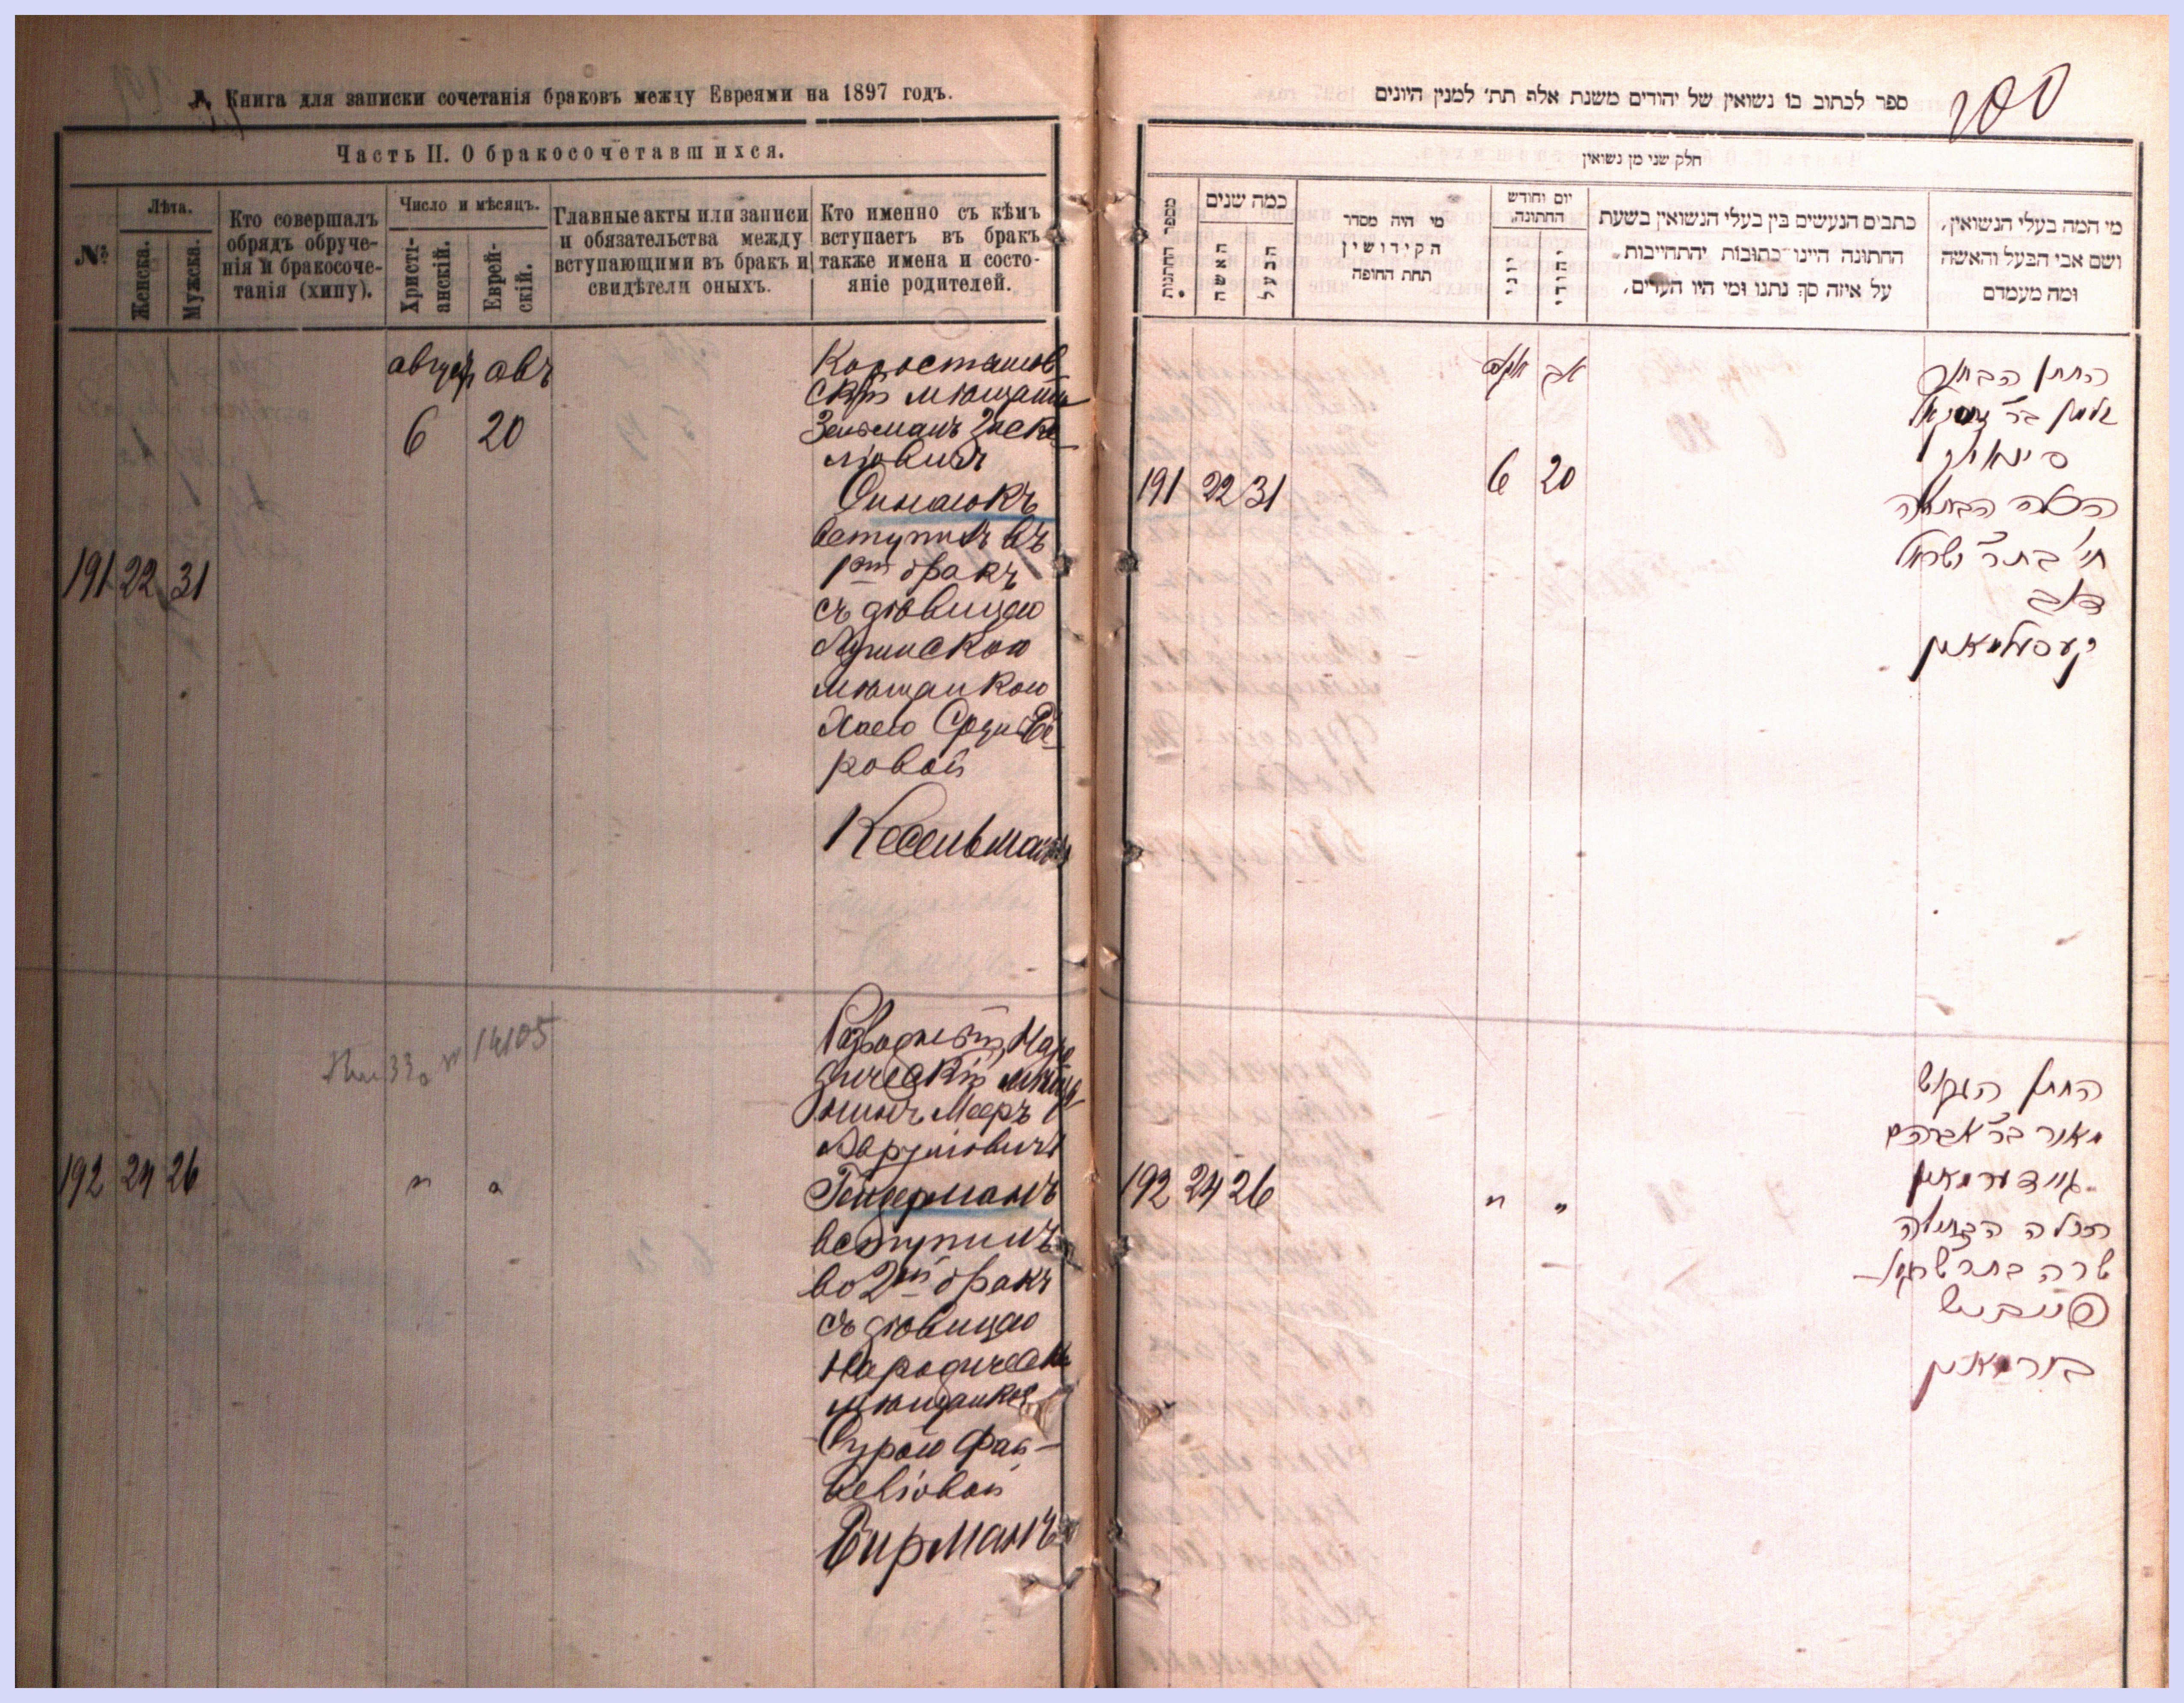 Книга для записки сочетанія браковъ между Евреями на 1897 годъ.
Часть II. О бракосочетавшихся.
№
Лѣта.
Женска.
Мужска.
Кто совершалъ
обрядъ обруче-
нія и бракосоче-
танія (хипу).
Число и мѣсяцъ.
Христі-
анскій.
Еврей-
скій.
Главные акты или записи
и обязательства между
вступающими въ бракъ и
свидѣтели оныхъ.
Кто именно съ кѣмъ
вступаетъ въ бракъ
также имена и состо-
яніе родителей.
191 22 31
августъ авъ
6 20
Коростышев
скій мѣщанинъ
Зельманъ
вступилъ въ
1й бракъ
съ дѣвицею
мѣщанкою
Хаею
ровой
Кесельманъ
192 24 26
" "
14105
Наро
дическій мѣща
нинъ Мееръ
Гендерманъ
вступилъ
во 2й бракъ
съ дѣвицею
Народическ
мѣщанкой
Сурою Фай
велiовой
Бирманъ
ספר לכתוב בו נשואין של יהודים משנת אלף תת׳ למנין היונים
200
חלק שני מן נשואין
מספר החתונות
כמה שנים
האשה
הבעל
מי היה מסדר
הקידושין
תחת החופה
יום וחודש
החתונה
יוני
יהודי
כתבים הנעשים בין בעלי הנשואין בשעת
החתונה היינו כתובות יהתחייבות
על איזה סך נתנו ומי היו העדים,
מי המה בעלי הנשואין,
ושם אבי הבעל והאשה
ומה מעמדם
191 22 31
אב
6 20
החתן הבחור
זלמן בר
הכלה הבתולה
חי׳ בת ר׳ ישראל
קעסילמאן
192 24 26
" "
החתן הגרוש
מאיר בר אברהם
הכלה הבתולה
שרה בת ר׳
פייביש
בירמאן